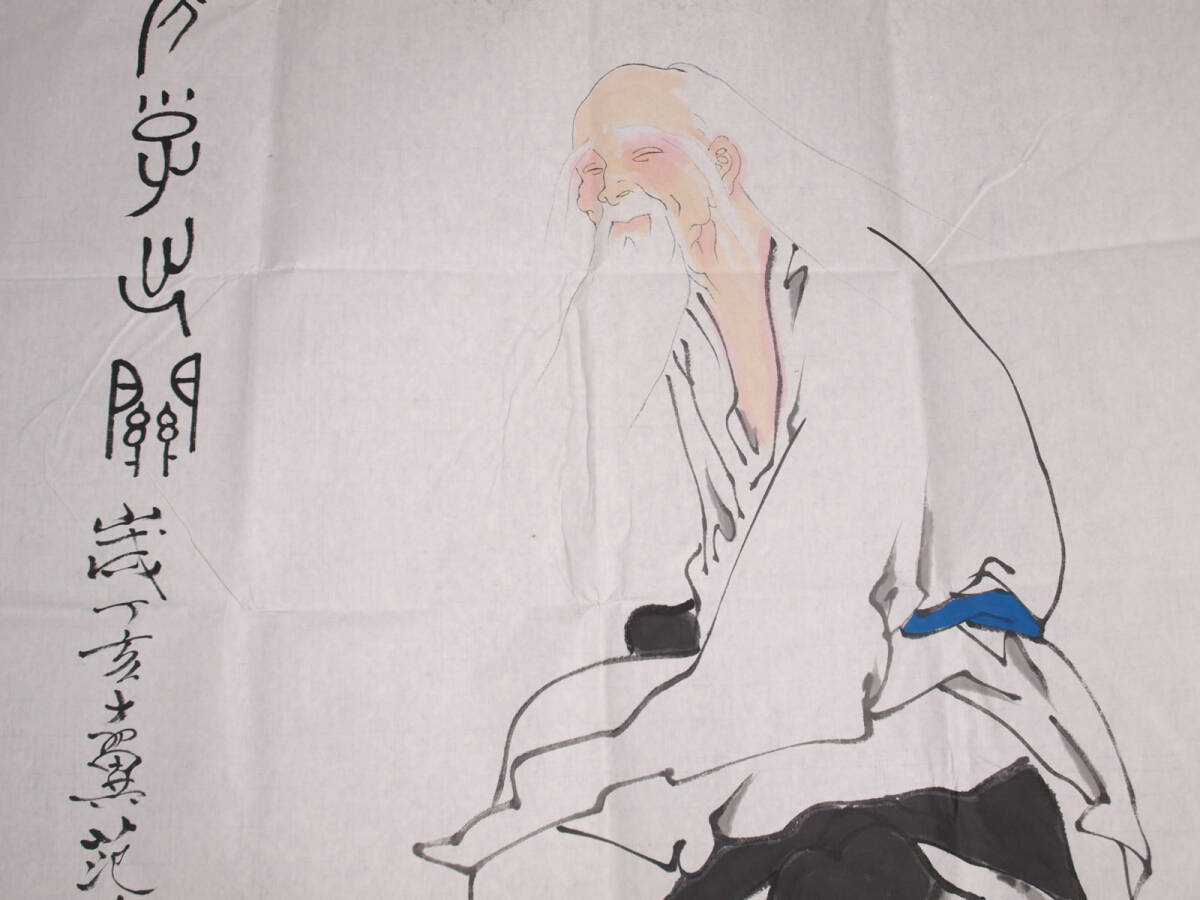 子出關歲丁亥十翼范